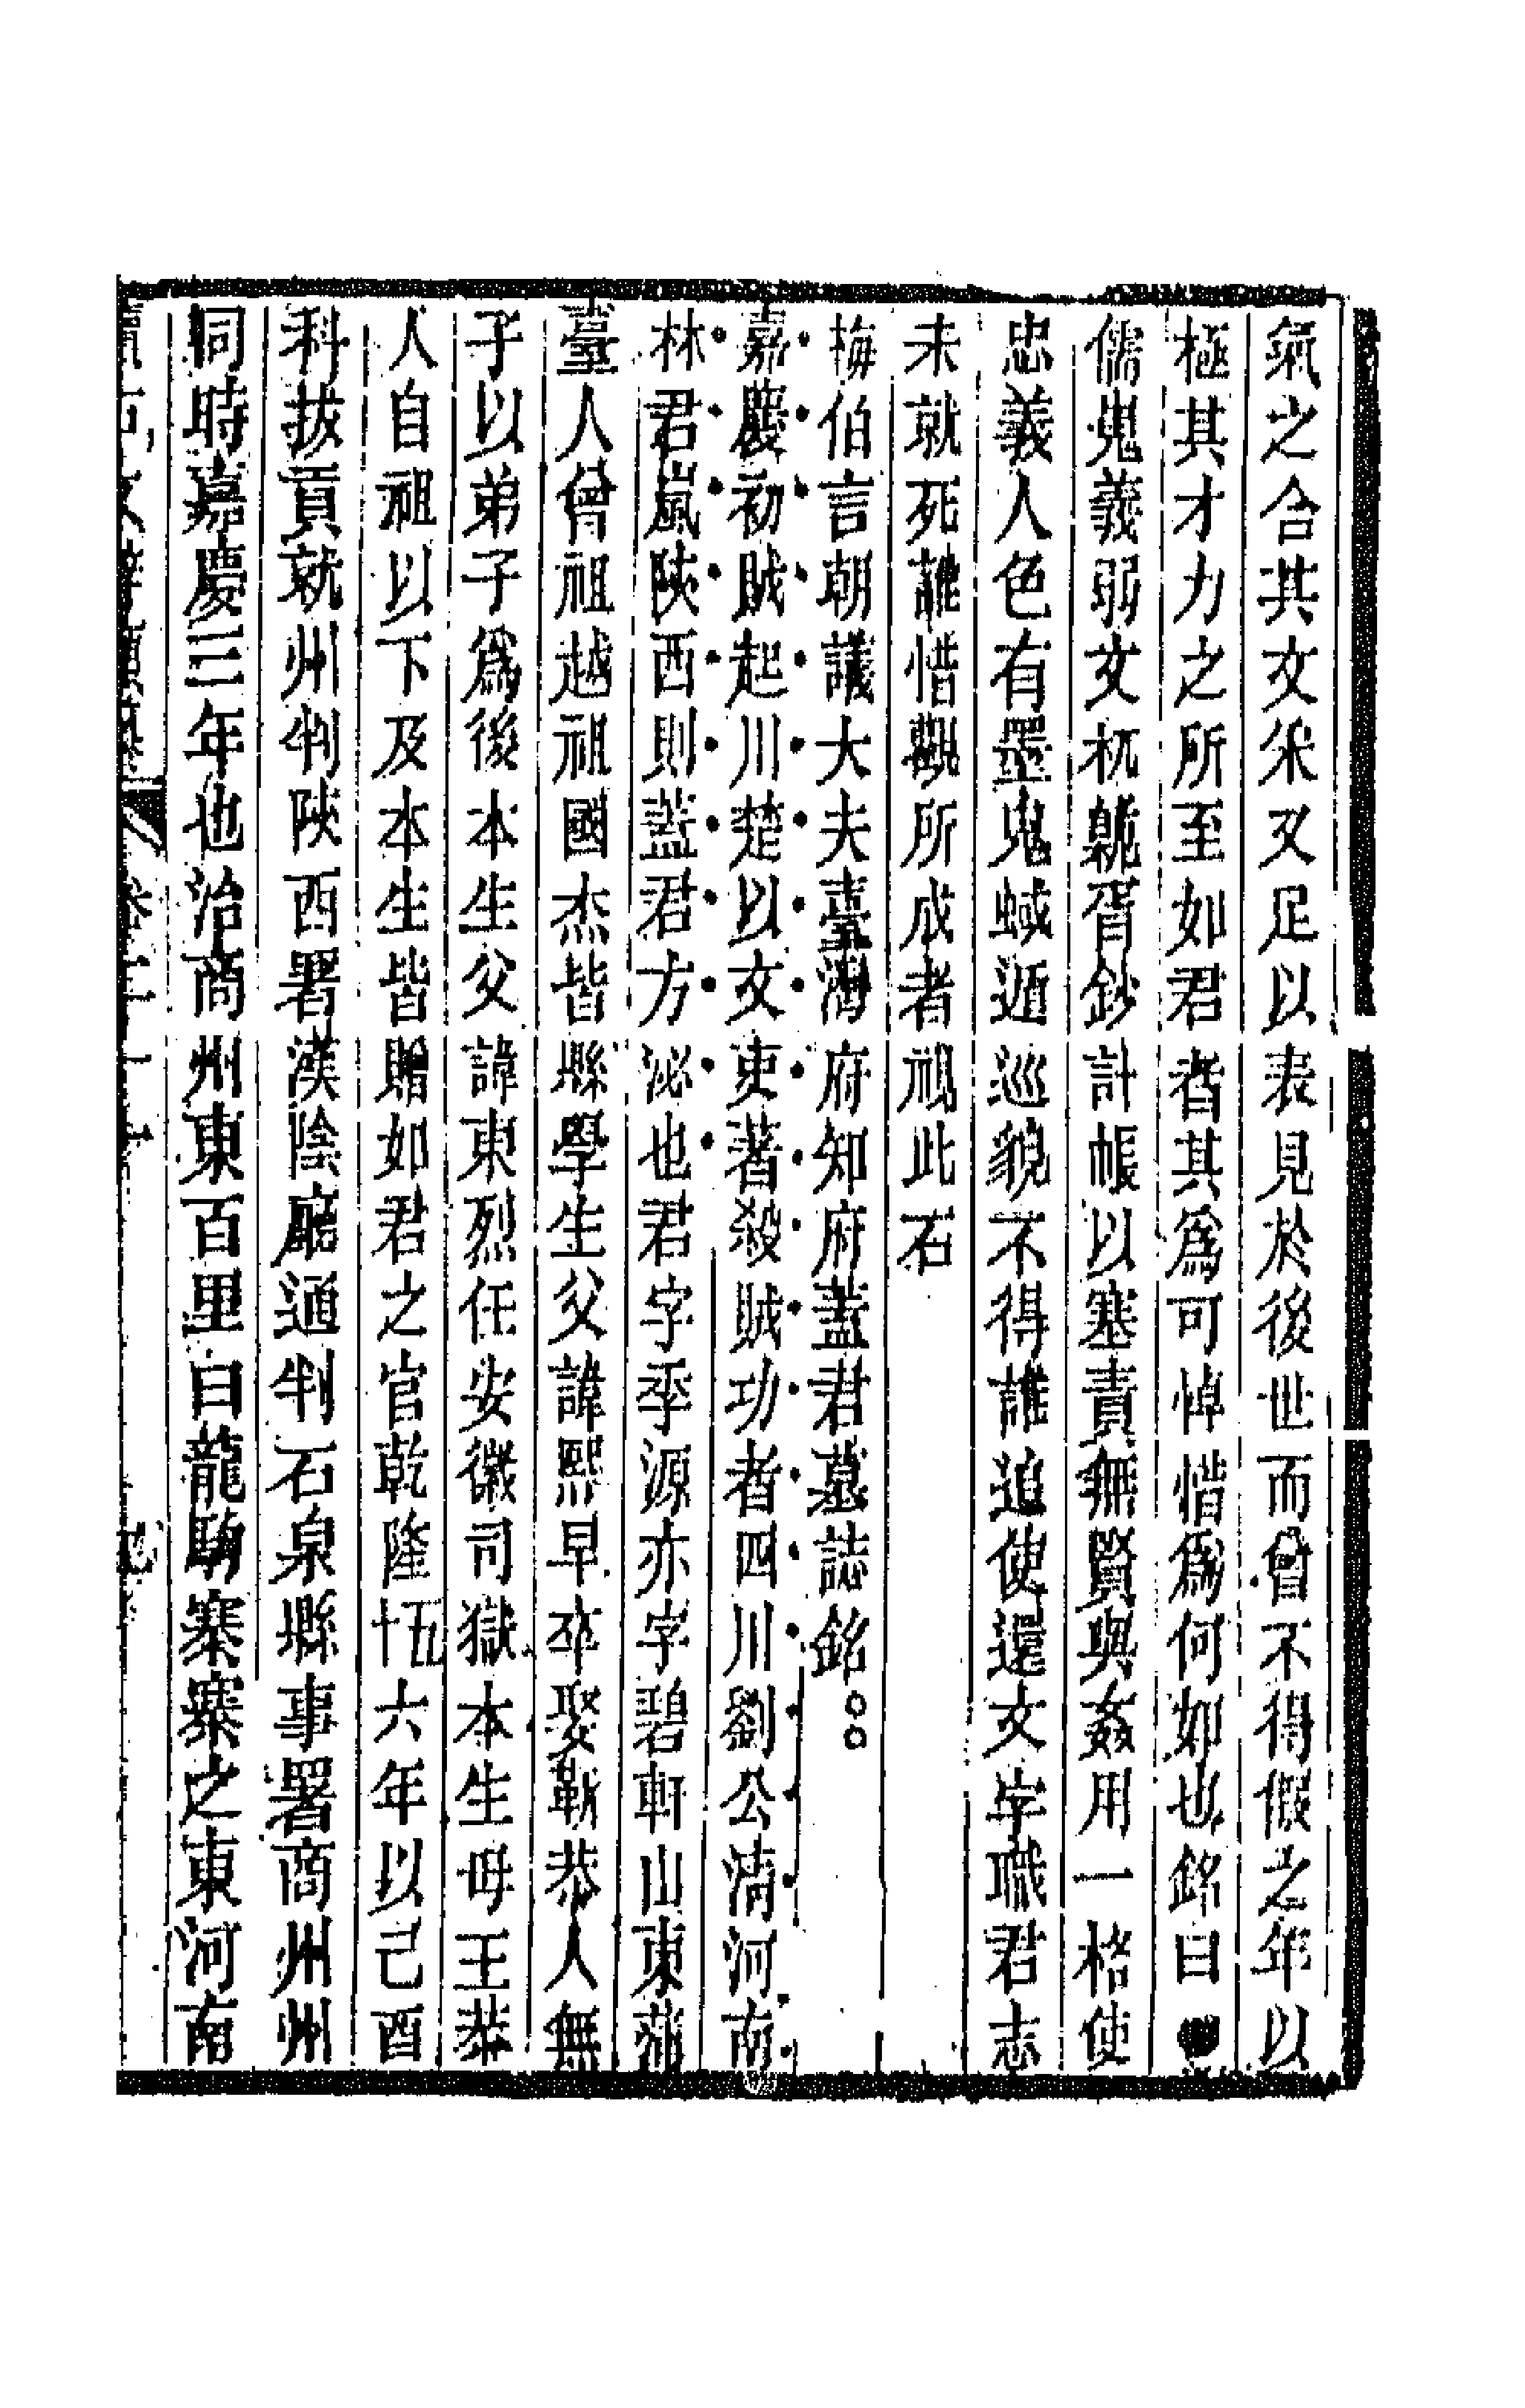 氣之合其文采又足以表見於後世而曾不得假之年以
極其才力之所至如君者其爲可悼惜爲何如也銘曰
儒鬼義弱文杌臲胥鈔計帳以塞責無賢與姦用一格使
忠義人色有墨鬼蜮遁巡貌不得誰追使還文字職君志
未就死誰惜觀所成者視此石
梅伯言朝議大夫臺灣府知府蓋君墓誌銘
嘉慶初賊起川楚以文吏著殺賊功者四川劉公淸河南
林君嵐陝西則蓋君方泌也君字季源亦字碧軒山東蒲
臺人曾祖越祖國杰皆縣學生父諱熙早卒娶靳恭人無
子以弟子爲後本生父諱東烈任安徽司獄本生母王恭
人自祖以下及本生皆贈如君之官乾隆五十六年以己酉
科拔貢就州判陝西署漢陰廳通判石泉縣事署商州州
同時嘉慶三年也治商州東百里曰龍駒寨寨之東河南
續古文辭類纂 卷二十